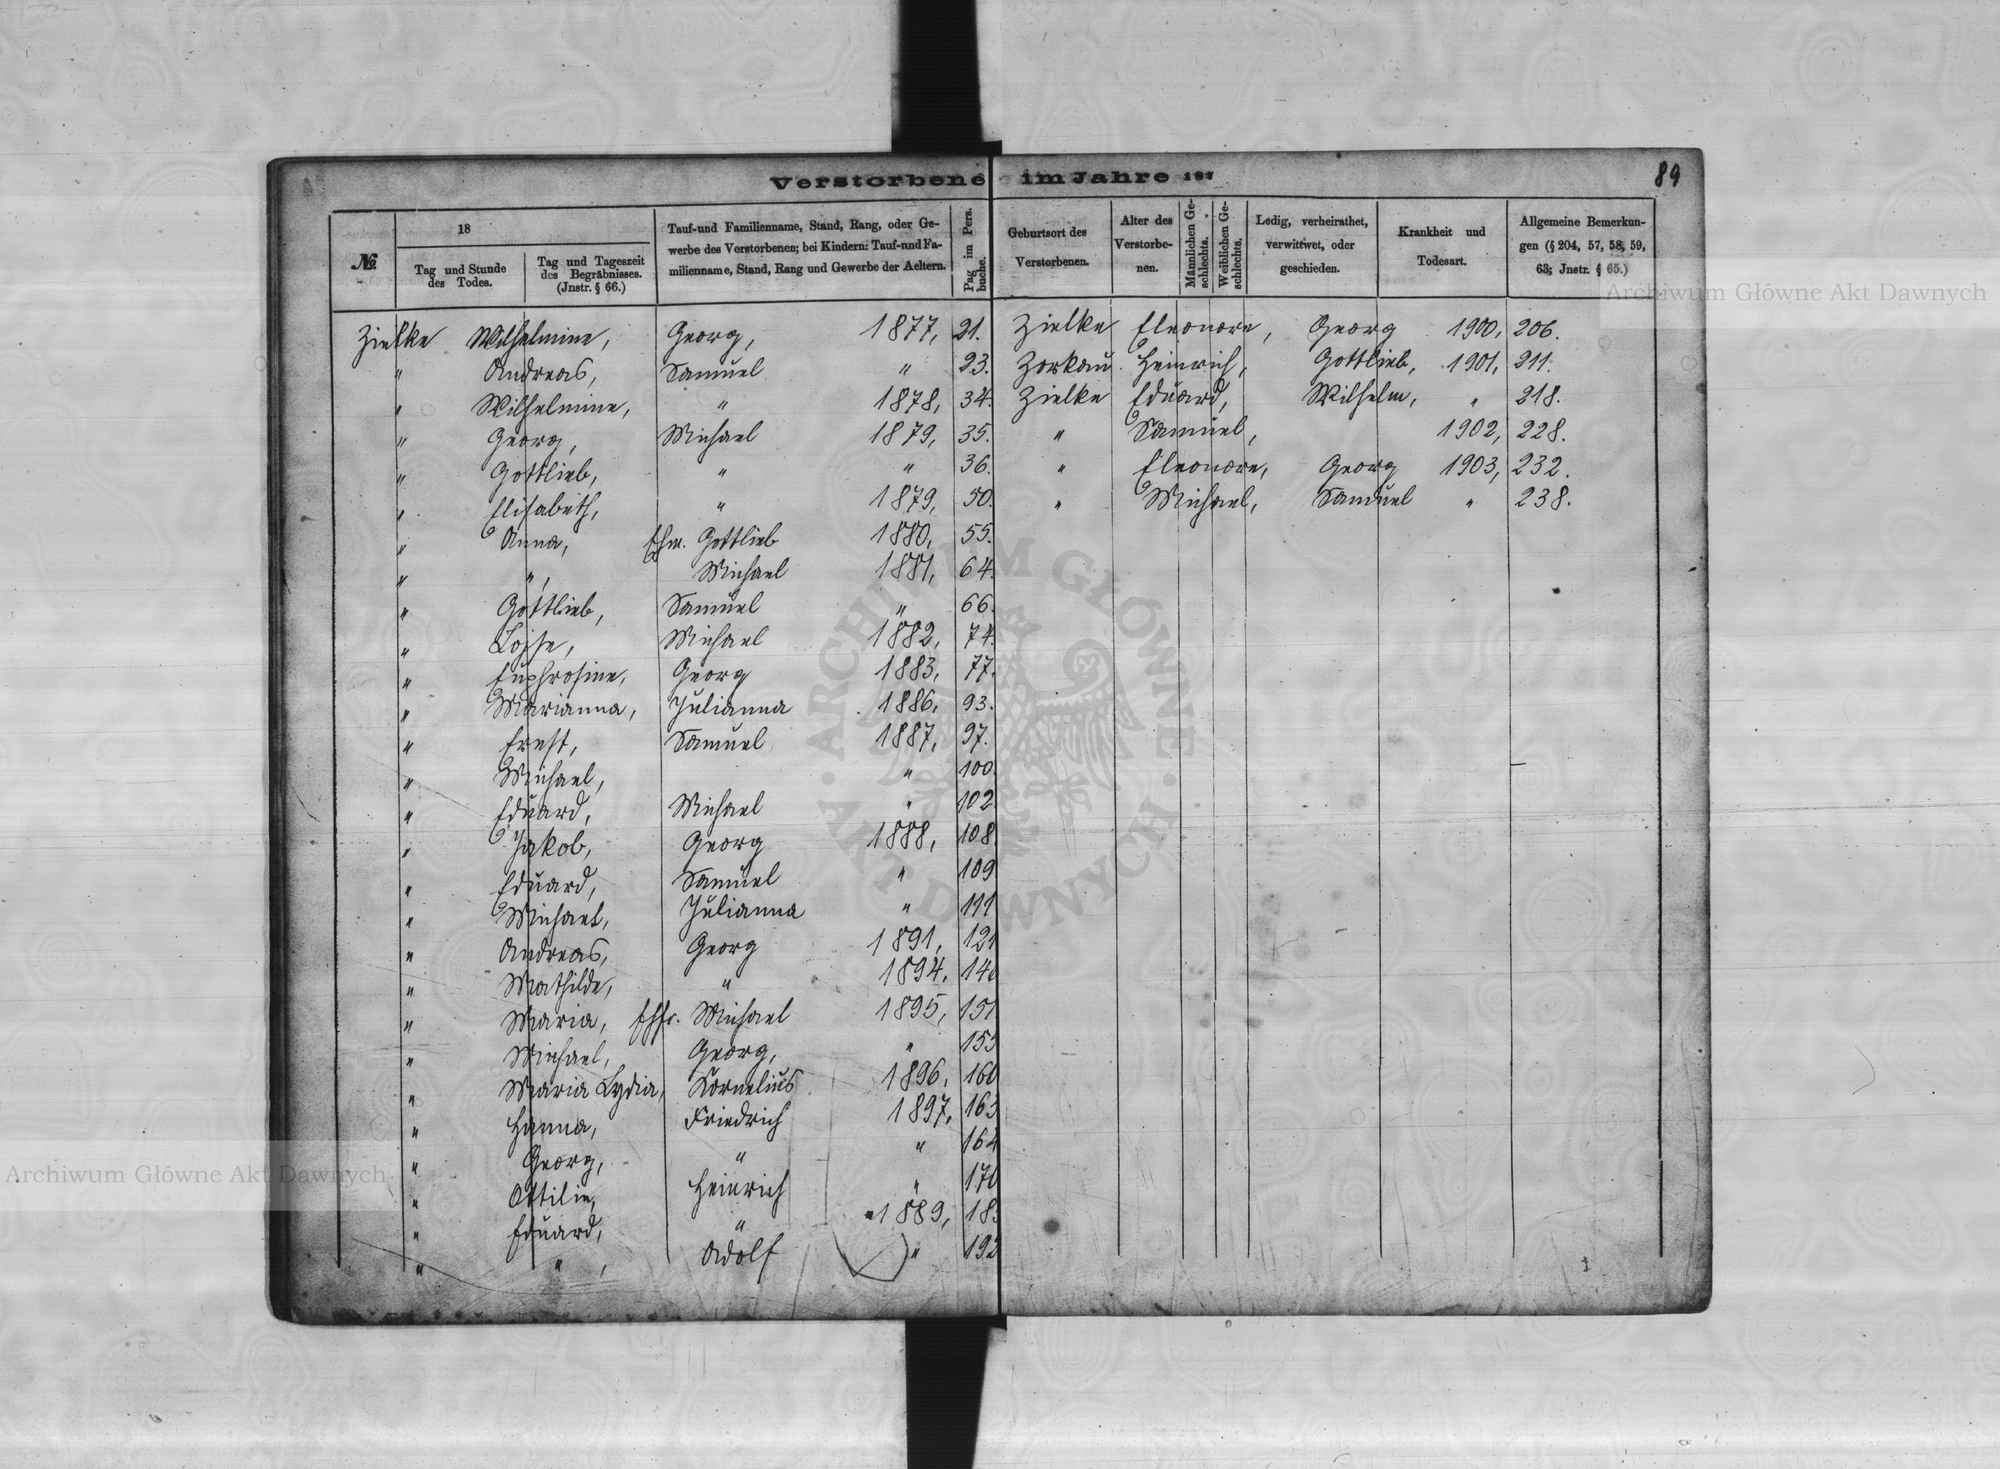 Verstorbene im Jahre 187
89
№
18
Tag und Stunde des Todes.
Tag und Tageszeit des Begräbnisses. (Jnstr. § 66.)
Tauf-und Familienname, Stand, Rang, oder Ge-
werbe des Verstorbenen; bei Kindern: Tauf-und Fa-
milienname, Stand, Rang und Gewerbe der Aeltern.
Pag im Pers. buche.
Geburtsort des Verstorbenen.
Alter des Verstorbe-nen.
Männlichen Ge-schlechts.
Weiblichen Ge-schlechts.
Ledig, verheirathet, verwittwet, oder geschieden.
Krankheit und Todesart.
Allgemeine Bemerkun-
gen (§ 204, 57, 58, 59,
63; Jnstr. § 65.)
Zielke Wilhelmine, Georg, 1877, 21.
" Andreas, Samuel " 23.
" Wilhelmine, " 1878, 34.
" Georg, Michael 1879, 35.
" Gottlieb, " " 36.
" Elisabeth, " 1879, 50.
" Anna, Ehm. Gottlieb 1880, 55.
" ", Michael 1881, 64.
" Gottlieb, Samuel " 66.
" Lojse, Michael 1882, 74.
" Euphrosine, Georg 1883, 77.
" Marianna, Julianna 1886, 93.
" Ernst, Samuel 1887, 97.
" Michael, " 100.
" Eduard, Michael " 102
" Jakob, Georg 1888, 108
" Eduard, Samuel " 109
" Michael, Julianna " 111
" Andreas, Georg 1891, 121
" Mathilde, " 1894, 140
" Maria, Ehfr. Michael 1895, 151
" Michael, Georg, " 153
" Maria Lydia, Kornelius 1896, 160
" Hanna, Friedrich 1897, 163
" Georg, " " 164
" Ottilie, Heinrich " 170
" Eduard, " 1889, 183
" ", Adolf " 192
Zielke Eleonore, Georg 1900, 206.
Zorkau Heinrich, Gottlieb, 1901, 211.
Zielke Eduard, Wilhelm, " 218.
" Samuel, 1902, 228.
" Eleonore, Georg 1903, 232.
" Michael, Samuel " 238.
Archiwum Główne Akt Dawnych
Archiwum Główne Akt Dawnych
ARCHIWUM GŁÓWNE AKT DAWNYCH